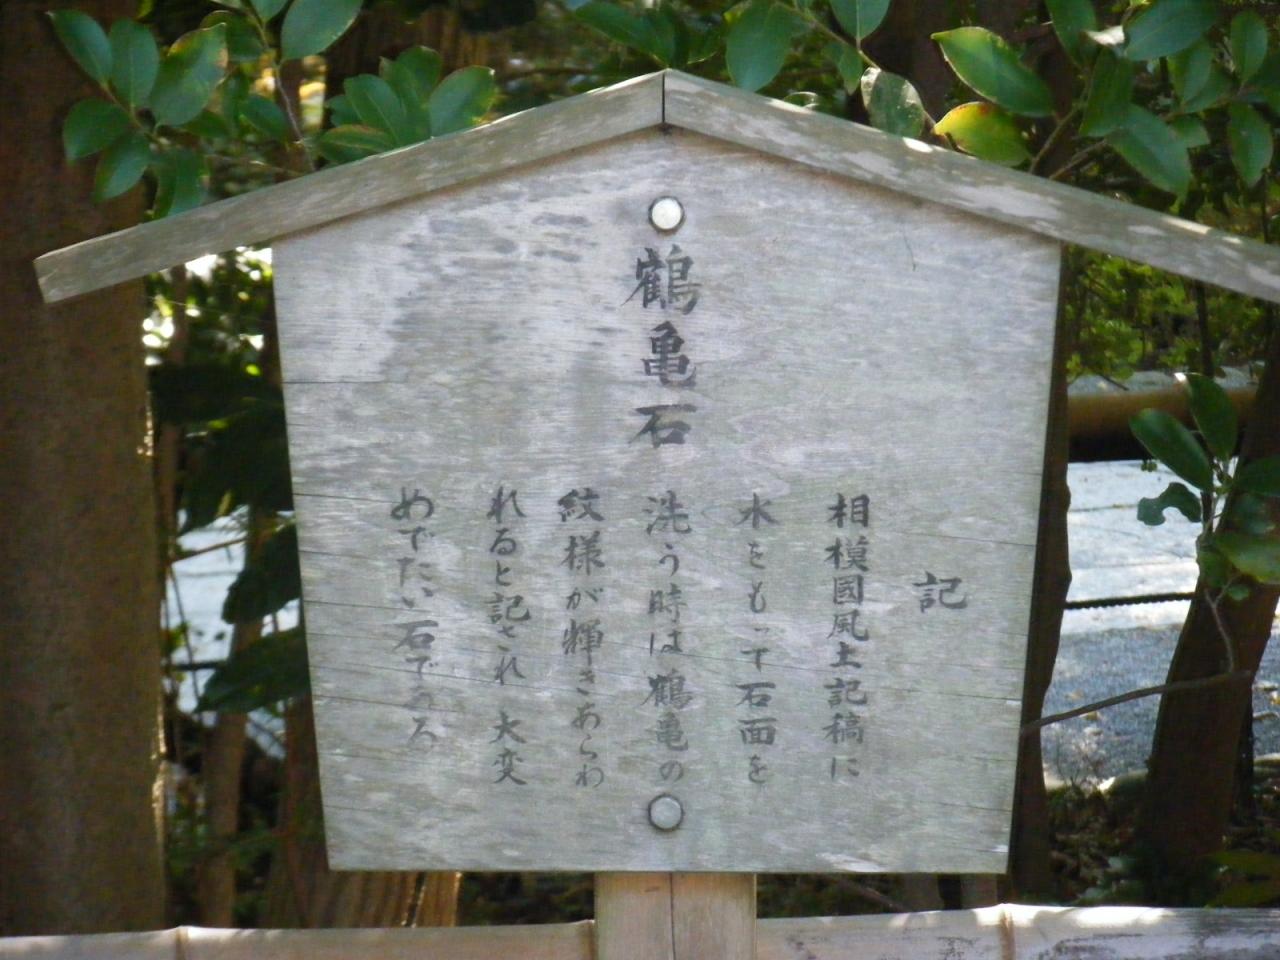 鶴亀石
記
相模國風土記稿に
水をもって石面を
洗う時は鶴亀の
紋様が輝きあらわ
れると記され 大変
めでたい石である